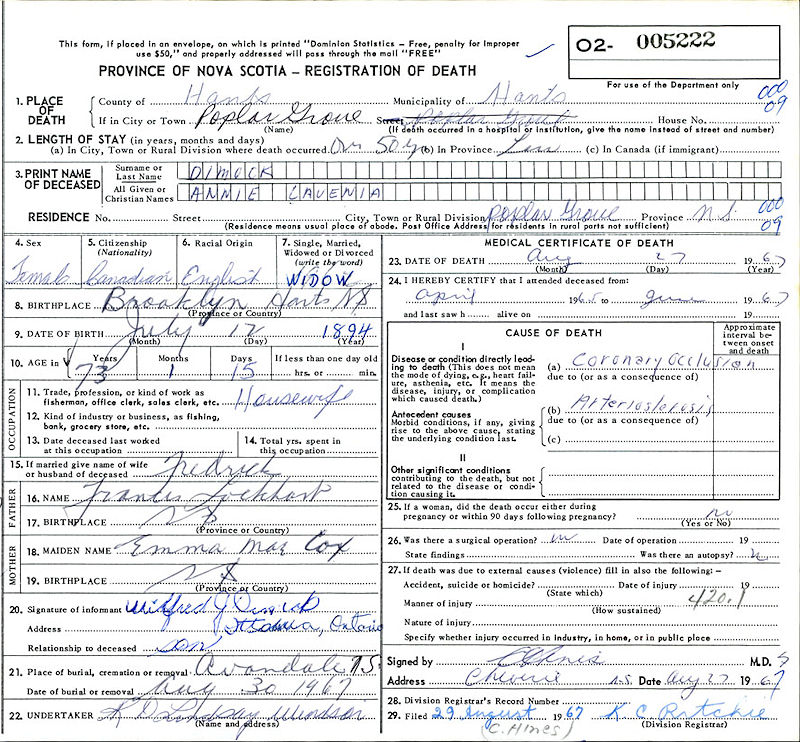 This form, if placed in an envelope, on which is printed "Dominion Statistics – Free, penalty for improper
use $50," and properly addressed will pass through the mail "FREE"
O2- 005222
PROVINCE OF NOVA SCOTIA – REGISTRATION OF DEATH
For use of the Department only
000
09
1. PLACE OF DEATH
County of Hants Municipality of Hants
If in City or Town Poplar Grove Street Poplar Grove House No.
(Name) (If death occurred in a hospital or institution, give the name instead of street and number)
2. LENGTH OF STAY (in years, months and days)
(a) In City, Town or Rural Division where death occurred. Over 50 y (b) In Province (c) In Canada (if immigrant)
3. PRINT NAME OF DECEASED
Surname or Last Name DIMOCK
All Given or Christian Names ANNIE LAVENIA
RESIDENCE No. Street City, Town or Rural Division Poplar Grove Province N.S. 000
(Residence means usual place of abode. Post Office Address for residents in rural parts not sufficient) 09
4. Sex 5. Citizenship (Nationality) 6. Racial Origin 7. Single, Married, Widowed or Divorced (write the word)
Female Canadian English WIDOW
8. BIRTHPLACE Brooklyn Hants NS
(Province or Country)
9. DATE OF BIRTH July 12 1894
(Month) (Day) (Year)
10. AGE in Years Months Days If less than one day old
73 1 15 hrs. or min.
OCCUPATION
11. Trade, profession, or kind of work as
fisherman, office clerk, sales clerk, etc. Housewife
12. Kind of industry or business, as fishing,
bank, grocery store, etc.
13. Date deceased last worked
at this occupation
14. Total yrs. spent in
this occupation
15. If married give name of wife
or husband of deceased Fredrick
FATHER
16. NAME Francis Lockhart
17. BIRTHPLACE NS
(Province or Country)
MOTHER
18. MAIDEN NAME Emma Mae Cox
19. BIRTHPLACE NS
(Province or Country)
20. Signature of informant Wilfred J Dimock
Address Ottawa, Ontario
Relationship to deceased son
21. Place of burial, cremation or removal Avondale N.S.
Date of burial or removal Aug 30 1967
22. UNDERTAKER K D Lindsay Windsor
(Name and address)
MEDICAL CERTIFICATE OF DEATH
23. DATE OF DEATH Aug 27 1967
(Month) (Day) (Year)
24. I HEREBY CERTIFY that I attended deceased from:
April 1965 to June 1967
and last saw h alive on 19
CAUSE OF DEATH
Approximate interval between onset and death
I
Disease or condition directly leading to death (This does not mean the mode of dying, e.g., heart failure, asthenia, etc. It means the disease, injury, or complication which caused death.)
(a) Coronary Occlusion
due to (or as a consequence of)
Antecedent causes
Morbid conditions, if any, giving rise to the above cause, stating the underlying condition last.
(b) Arteriosclerosis
due to (or as a consequence of)
(c)
II
Other significant conditions
contributing to the death, but not related to the disease or condition causing it.
25. If a woman, did the death occur either during
pregnancy or within 90 days following pregnancy? no
(Yes or No)
26. Was there a surgical operation? no Date of operation 19
State findings Was there an autopsy?
27. If death was due to external causes (violence) fill in also the following: –
Accident, suicide or homicide? Date of injury 19
(State which)
Manner of injury 420.1
(How sustained)
Nature of injury
Specify whether injury occurred in industry, in home, or in public place
Signed by M.D.
Address Cheverie N.S. Date Aug 27 1967
28. Division Registrar's Record Number
29. Filed 29 August 1967 K C Ritchie
(C. Hines) (Division Registrar)